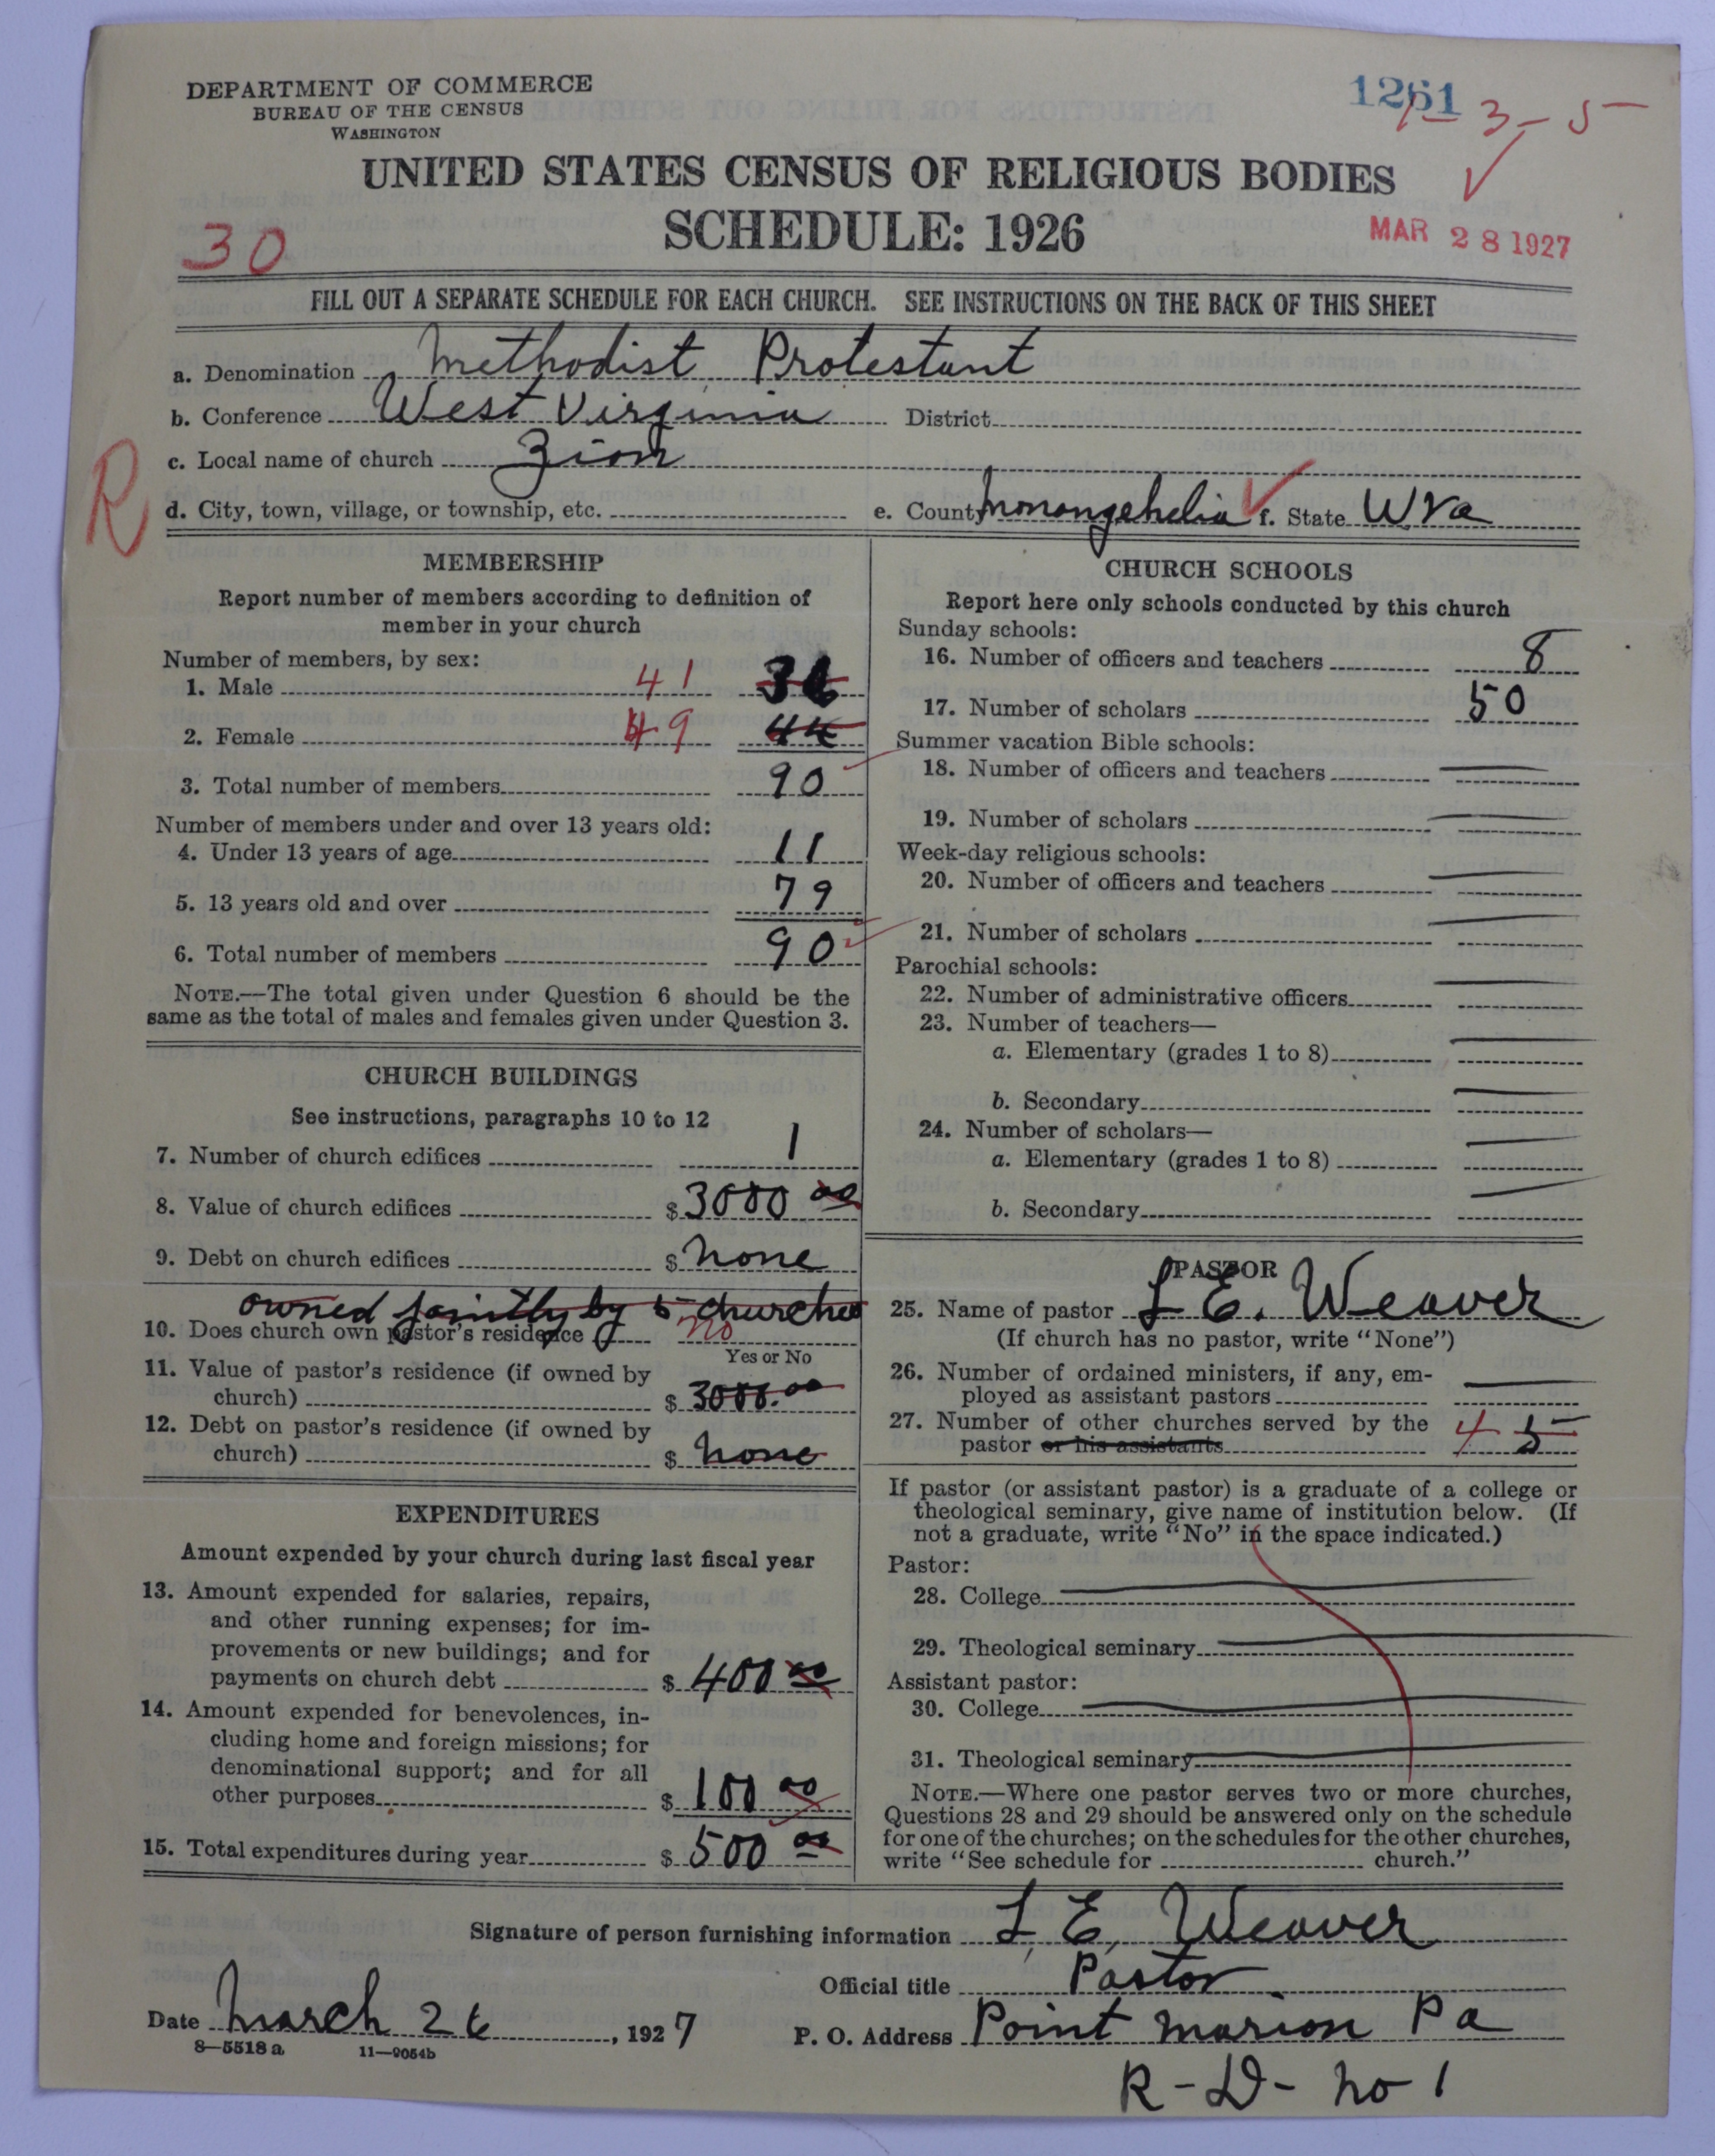 DEPARTMENT OF COMMERCE
BUREAU OF THE CENSUS
WASHINGTON
1261
1-3-5
UNITED STATES CENSUS OF RELIGIOUS BODIES
SCHEDULE: 1926
30
MAR 28 1927
FILL OUT A SEPARATE SCHEDULE FOR EACH CHURCH. SEE INSTRUCTIONS ON THE BACK OF THIS SHEET
a. Denomination Methodist Protestant
b. Conference West Virginia District
c. Local name of church Zion
R
d. City, town, village, or township, etc. e. County Monongehelia f. State W Va
MEMBERSHIP
Report number of members according to definition of
member in your church
Number of members, by sex:
1. Male 41 36
2. Female 49 44
3. Total number of members 90
Number of members under and over 13 years old:
4. Under 13 years of age 11
5. 13 years old and over 79
6. Total number of members 90
NOTE.—The total given under Question 6 should be the
same as the total of males and females given under Question 3.
CHURCH BUILDINGS
See instructions, paragraphs 10 to 12
7. Number of church edifices 1
8. Value of church edifices $ 3000 00
9. Debt on church edifices $ none
owned jointly by 5 churches
10. Does church own pastor's residence no
Yes or No
11. Value of pastor's residence (if owned by
church) $ 3000.00
12. Debt on pastor's residence (if owned by
church) $ none
EXPENDITURES
Amount expended by your church during last fiscal year
13. Amount expended for salaries, repairs,
and other running expenses; for im-
provements or new buildings; and for
payments on church debt $ 400 00
14. Amount expended for benevolences, in-
cluding home and foreign missions; for
denominational support; and for all
other purposes $ 100 00
15. Total expenditures during year $ 500 00
CHURCH SCHOOLS
Report here only schools conducted by this church
Sunday schools:
16. Number of officers and teachers 8
17. Number of scholars 50
Summer vacation Bible schools:
18. Number of officers and teachers
19. Number of scholars
Week-day religious schools:
20. Number of officers and teachers
21. Number of scholars
Parochial schools:
22. Number of administrative officers
23. Number of teachers—
a. Elementary (grades 1 to 8)
b. Secondary
24. Number of scholars—
a. Elementary (grades 1 to 8)
b. Secondary
PASTOR
25. Name of pastor L E. Weaver
(If church has no pastor, write "None")
26. Number of ordained ministers, if any, em-
ployed as assistant pastors
27. Number of other churches served by the
pastor or his assistants 4 5
If pastor (or assistant pastor) is a graduate of a college or
theological seminary, give name of institution below. (If
not a graduate, write "No" in the space indicated.)
Pastor:
28. College
29. Theological seminary
Assistant pastor:
30. College
31. Theological seminary
NOTE.—Where one pastor serves two or more churches,
Questions 28 and 29 should be answered only on the schedule
for one of the churches; on the schedules for the other churches,
write "See schedule for church."
Signature of person furnishing information L, E, Weaver
Official title Pastor
Date March 26, 1927 P. O. Address Point Marion Pa
8—5518 a 11—9054b
R-D- no 1